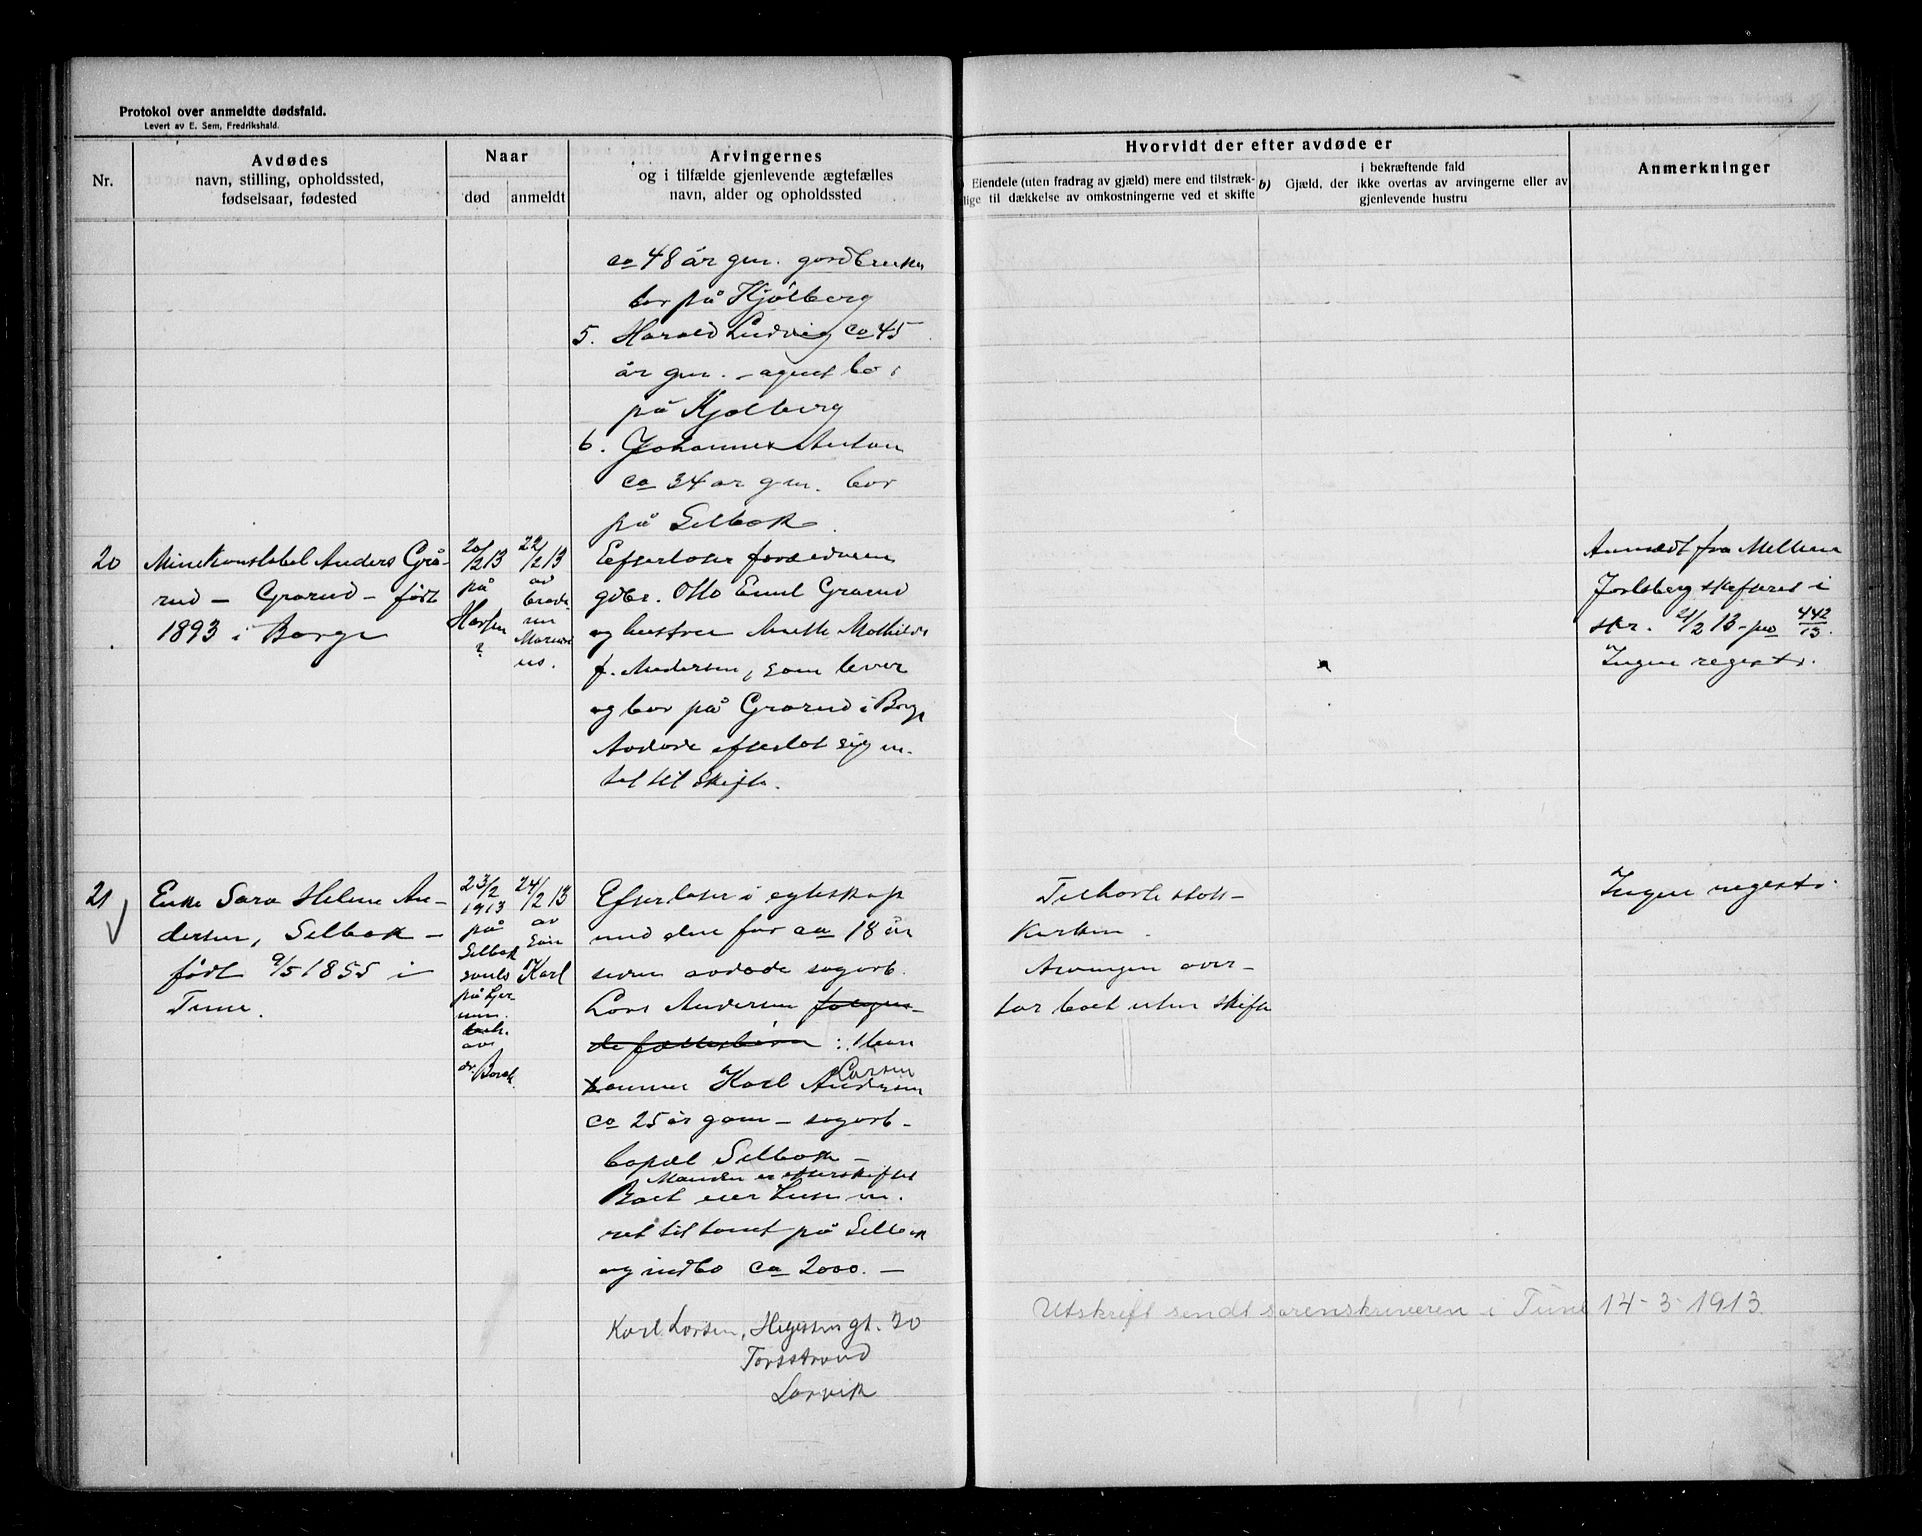 Protokol over anmeldte dødsfald.
Levert av E. Sem, Fredrikshald.
Nr.
Avdødes
navn, stilling, opholdssted,
fødselsaar, fødested
Naar
død
anmeldt
Arvingernes
og i tilfælde gjenlevende ægtefælles
navn, alder og opholdssted
Hvorvidt der efter avdøde er
Eiendele (uten fradrag av gjæld) mere end tilstræk-
lige til dækkelse av omkostningerne ved et skifte
i bekræftende fald
b) Gjæld, der ikke overtas av arvingerne eller av
gjenlevende hustru
Anmerkninger
ca 48 år gm. gordbruker
bor på Kjølberg
5. Harald Ludvig ca 45
år gm. - agent bor
på Kjølberg
6. Johannes Anton
ca 34 år gm. bor
på Selbak.
20
Minekonstabel Anders Grå-
rud - Grårud - født
1893 i Borge
20/2 13
på
Horten
?
22/2 13
av
brode-
ren
Efterlater foreldrene
gbr. Otto Emil Grårud
og hustru Anette Mathilde
f. Andersen, som lever
og bor på Grårud i Borge
Avdøde efterlot sig in-
tet til skifte.
Anmeldt fra Mellem
Jarlsberg skifteret i
skr. 21/2 13 - 442/13.
Ingen registr.
21
Enke Sara Helene An-
dersen, Selbak -
født 9/5 1855 i
Tune.
23/2
1913
på
Selbak
dr. Borch.
24/2 13
av
søn
Karl
Efterlater i egteskap
med den for ca 18 år
siden avdøde sagarb.
Lars Andersen følgen-
de fællesbørn : 1 barn
kommer Karl Andersen
Larsen
ca 25 år gam - sagarb -
bopæl Selbak -
Manden er efterskiftet
Boet eier huse m.
ret til tomt på Selbak
og indbo ca 2000. -
Karl Larsen, gt. 30
Torsstrand
Larvik
Tilhørte stats-
kirken.
Arvingen over-
tar boet uten skifte
Ingen registr.
Utskrift sendt sorenskriveren i Tune 14-3-1913.